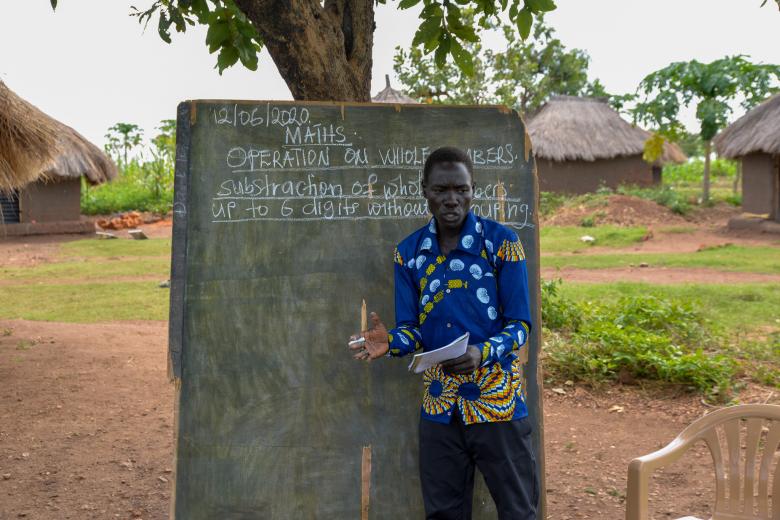 12/06/2020.
MATHS.
OPERATION ON WHOLE BERS.
Substraction of whol bers.
up to 6 digits withou ouping.